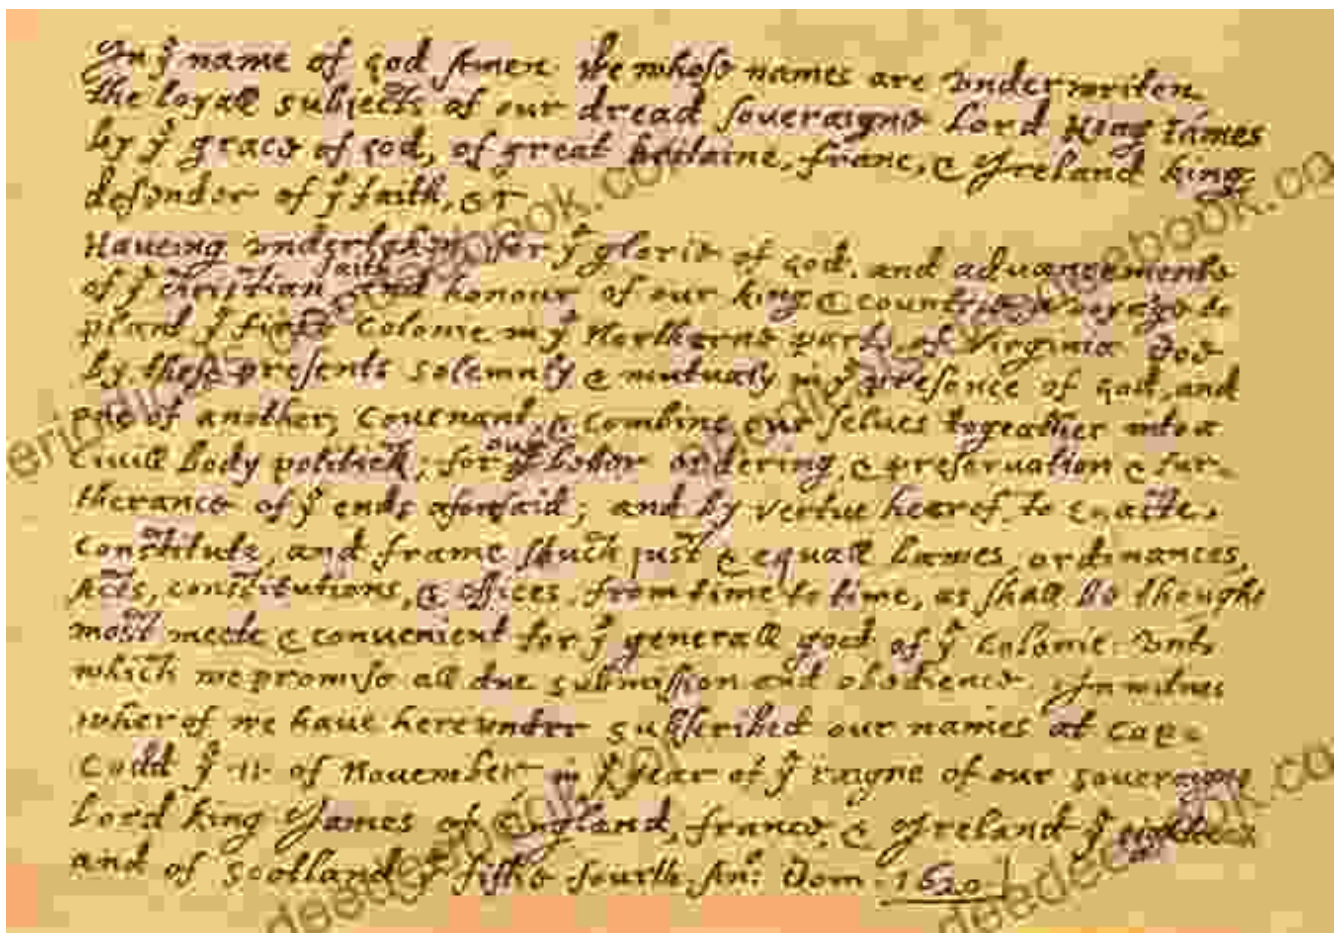 In yͤ name of god Amen. We whose names are underwriten,
the loyall subjects of our dread soueraigne Lord King James
by yͤ grace of god, of great britaine, franc, & Ireland king,
defender of yͤ faith, &c
Haueing undertaken, for yͤ glorie of god, and aduancements
of yͤ christian faith and honour of our king & countrie, a voyage to
plant yͤ first colonie in yͤ Northerne parts of Virginia. doe
by these presents solemnly & mutualy in yͤ presence of god, and
one of another, couenant, & combine our selues togeather into a
ciuill body politick; for our better ordering, & preseruation & fur-
therance of yͤ ends aforesaid; and by vertue hearof to enacte,
constitute, and frame shuch just & equall lawes, ordinances,
Acts, constitutions, & offices, from time to time, as shall be thought
most meete & conuenient for yͤ generall good of yͤ colonie: unto
which we promise all due submission and obedience. In witnes
wherof we haue hereunder subscribed our names at cape
Codd yͤ ·11· of Nouember, in yͤ year of yͤ raigne of our soueraigne
Lord king James of England, france, & Ireland yͤ eighteenth
and of Scotland yͤ fiftie fourth. An: Dom. 1620